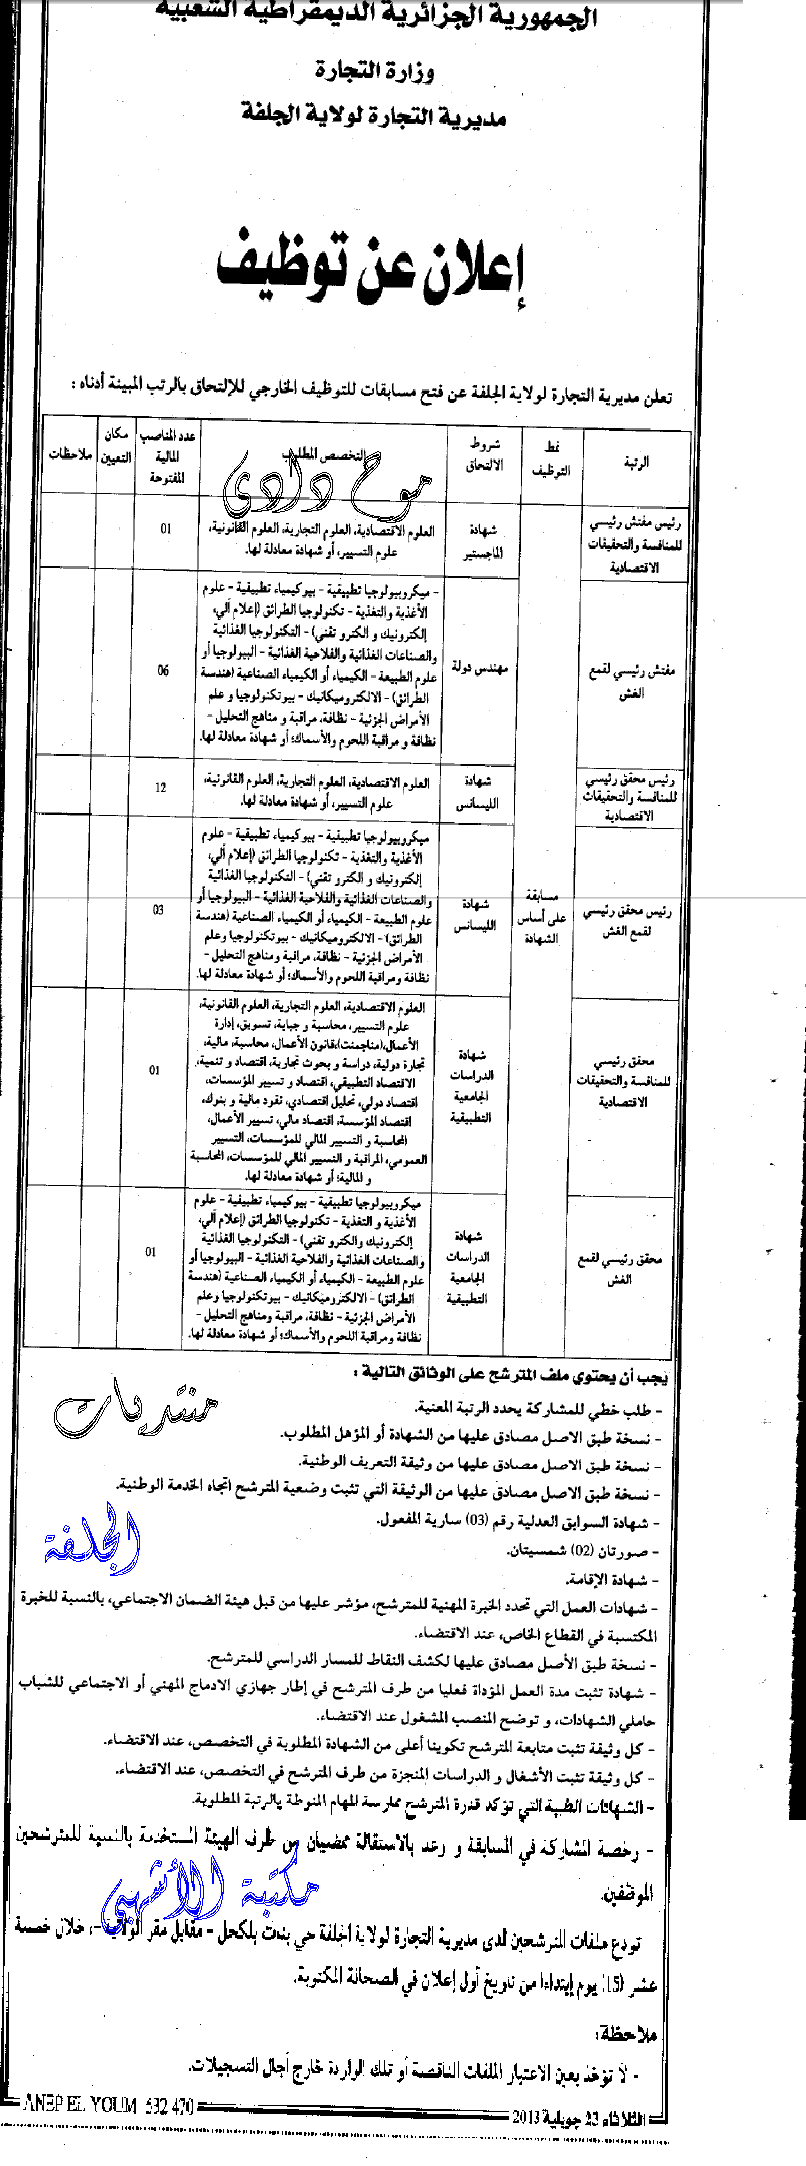 الجمهورية الجزائرية الديمقراطية الشعبية
وزارة التجارة
مديرية التجارة لولاية الجلفة
إعلان عن توظيف
تعلن مديرية التجارة لولاية الجلفة عن فتح مسابقات للتوظيف الخارجي للإلتحاق بالرتب المبينة أدناه :
الرتبة
نمط
التوظيف
شروط
الالتحاق
التخصص المطلوب
عدد المناصب
المالية
المفتوحة
مكان
التعيين
ملاحظات
موح دادي
رئيس مفتش رئيسي
للمنافسة والتحقيقات
الاقتصادية
شهادة
الماجستير
العلوم الاقتصادية، العلوم التجارية، العلوم القانونية،
علوم التسيير، أو شهادة معادلة لها.
01
مفتش رئيسي لقمع
الغش
مهندس دولة
- ميكروبيولوجيا تطبيقية - بيوكيمياء تطبيقية - علوم
الأغذية والتغذية - تكنولوجيا الطرائق (إعلام آلي،
إلكترونيك و الكترو تقني) - التكنولوجيا الغذائية
والصناعات الغذائية والفلاحية الغذائية - البيولوجيا أو
علوم الطبيعة - الكيمياء أو الكيمياء الصناعية (هندسة
الطرائق) - الالكتروميكانيك - بيوتكنولوجيا و علم
الأمراض الجزئية - نظافة، مراقبة و مناهج التحليل -
نظافة و مراقبة اللحوم والأسماك؛ أو شهادة معادلة لها.
06
رئيس محقق رئيسي
للمنافسة والتحقيقات
الاقتصادية
شهادة
الليسانس
العلوم الاقتصادية، العلوم التجارية، العلوم القانونية،
علوم التسيير، أو شهادة معادلة لها.
12
رئيس محقق رئيسي
لقمع الغش
مسابقة
على أساس
الشهادة
شهادة
الليسانس
ميكروبيولوجيا تطبيقية - بيوكيمياء تطبيقية - علوم
الأغذية والتغذية - تكنولوجيا الطرائق (إعلام آلي،
إلكترونيك و الكترو تقني) - التكنولوجيا الغذائية
والصناعات الغذائية والفلاحية الغذائية - البيولوجيا أو
علوم الطبيعة - الكيمياء أو الكيمياء الصناعية (هندسة
الطرائق) - الالكتروميكانيك - بيوتكنولوجيا وعلم
الأمراض الجزئية - نظافة، مراقبة ومناهج التحليل -
نظافة ومراقبة اللحوم والأسماك؛ أو شهادة معادلة لها.
03
محقق رئيسي
للمنافسة والتحقيقات
الاقتصادية
شهادة
الدراسات
الجامعية
التطبيقية
العلوم الاقتصادية، العلوم التجارية، العلوم القانونية،
علوم التسيير، محاسبة و جباية، تسويق، إدارة
الأعمال،(مناجمنت)،قانون الأعمال، محاسبة، مالية،
تجارة دولية، دراسة و بحوث تجارية، اقتصاد و تنمية،
الاقتصاد التطبيقي، اقتصاد و تسيير المؤسسات،
اقتصاد دولي، تحليل اقتصادي، نقود مالية و بنوك،
اقتصاد المؤسسة، اقتصاد مالي، تسيير الأعمال،
المحاسبة و التسيير المالي للمؤسسات، التسيير
العمومي، المراقبة و التسيير المالي للمؤسسات، المحاسبة
و المالية؛ أو شهادة معادلة لها.
01
محقق رئيسي لقمع
الغش
شهادة
الدراسات
الجامعية
التطبيقية
ميكروبيولوجيا تطبيقية - بيوكيمياء تطبيقية - علوم
الأغذية و التغذية - تكنولوجيا الطرائق (إعلام آلي،
إلكترونيك والكترو تقني) - التكنولوجيا الغذائية
والصناعات الغذائية والفلاحية الغذائية - البيولوجيا أو
علوم الطبيعة - الكيمياء أو الكيمياء الصناعية (هندسة
الطرائق) - الالكتروميكانيك - بيوتكنولوجيا وعلم
الأمراض الجزئية - نظافة، مراقبة ومناهج التحليل -
نظافة ومراقبة اللحوم والأسماك؛ أو شهادة معادلة لها.
01
يجب أن يحتوي ملف المترشح على الوثائق التالية :
- طلب خطي للمشاركة يحدد الرتبة المعنية.
منتديات
- نسخة طبق الاصل مصادق عليها من الشهادة أو المؤهل المطلوب.
- نسخة طبق الاصل مصادق عليها من وثيقة التعريف الوطنية.
- نسخة طبق الاصل مصادق عليها من الوثيقة التي تثبت وضعية المترشح إتجاه الخدمة الوطنية.
- شهادة السوابق العدلية رقم (03) سارية المفعول.
الجلفة
- صورتان (02) شمسيتان.
- شهادة الإقامة.
- شهادات العمل التي تحدد الخبرة المهنية للمترشح، مؤشر عليها من قبل هيئة الضمان الاجتماعي، بالنسبة للخبرة
المكتسبة في القطاع الخاص، عند الاقتضاء.
- نسخة طبق الأصل مصادق عليها لكشف النقاط للمسار الدراسي للمترشح.
- شهادة تثبت مدة العمل المؤداة فعليا من طرف المترشح في إطار جهازي الادماج المهني أو الاجتماعي للشباب
حاملي الشهادات، و توضح المنصب المشغول عند الاقتضاء.
- كل وثيقة تثبت متابعة المترشح تكوينا أعلى من الشهادة المطلوبة في التخصص، عند الاقتضاء.
- كل وثيقة تثبت الأشغال و الدراسات المنجزة من طرف المترشح في التخصص، عند الاقتضاء.
- الشهادات الطبية التي تؤكد قدرة المترشح ممارسة المهام المنوطة بالرتبة المطلوبة.
- رخصة المشاركة في المسابقة و وعد بالاستقالة ممضيان من طرف الهيئة المستخدمة بالنسبة للمترشحين
الموظفين.
مكتبة الأشهبي
تودع ملفات المترشحين لدى مديرية التجارة لولاية الجلفة حي بلكحل - مقابل مقر الولاية -، خلال خمسة
عشر (15) يوم إبتداءا من تاريخ أول إعلان في الصحافة المكتوبة.
ملاحظة:
- لا تؤخذ بعين الاعتبار الملفات الناقصة أو تلك الواردة خارج أجال التسجيلات.
الثلاثاء 23 جويلية 2013
ANEP EL YOUM 532 470